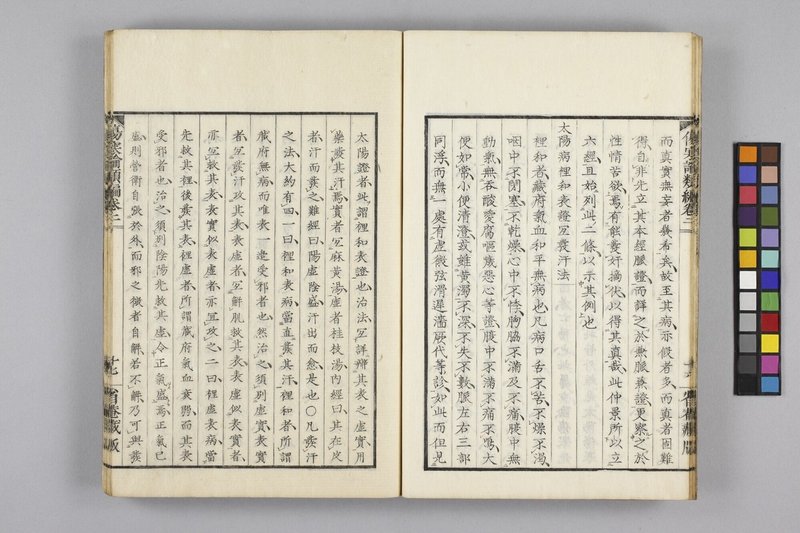 而真實無妄者幾希矣故至其病亦假者多而真者固難
得自非先立其本經脈證而詳之於兼脈兼證更察之於
性情苦欲焉有能發奸摘伏以得其真哉此仲景所以立
六經且始列此二條以示其例也
太陽病裡和表證冝發汗法
裡和者藏府氣血和平無病也凡病口舌不苦不燥不渴
咽中不閉塞不乾燥心中不悸胸脇不滿及不痛腹中無
動氣無吞酸愛腐嘔噦惡心等證腹中不滿不痛不鳴大
便如常小便清澄或雖黃濁不深不失不數脈左右三部
同浮而無一處有虛微弦滑遲濇厥代等診如此而但見
傷寒論類編卷二
省菴藏版
太陽證者此謂裡和表證也治法冝詳辨其表之虛實用
藥發其汗焉實者冝麻黃湯虛者桂枝湯內經曰其在皮
者汗而發之難經曰陽虛陰盛汗出而愈是也〇凡發汗
之法大約有四一曰裡和表病當直發其汗裡和者所謂
藏府無病而唯表一邊受邪者也然治之須別虛實表實
者冝發汗攻其表表虛者冝解肌救其表表虛似表實者
亦冝救其表表實似表虛者亦冝攻之二曰裡虛表病當
先救其裡後發其表裡虛者所謂藏府氣血衰弱而其表
受邪者也治之須別陰陽先救其虛令正氣盛焉正氣已
盛則營衛自強於外而邪之微者自解若不解乃可與發
傷寒論類編卷二
十七
省菴藏版